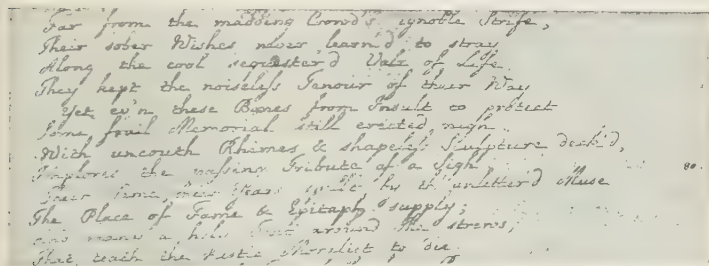 Far from the madding Crowd's ignoble Strife,
Their sober Wishes never learn'd to stray
Along the cool sequester'd Vale of Life
They kept the noiseless Tenour of their Way
Yet ev'n these Bones from Insult to protect
Some frail Memorial still erected nigh
With uncouth Rhimes & shapeless Sculpture deck'd,
Implores the passing Tribute of a Sigh
80.
Their Name, their Years spelt by th' unletter'd Muse
The Place of Fame & Epitaph supply;
And many a holy Text around she strews,
That teach the rustic Moralist to die.